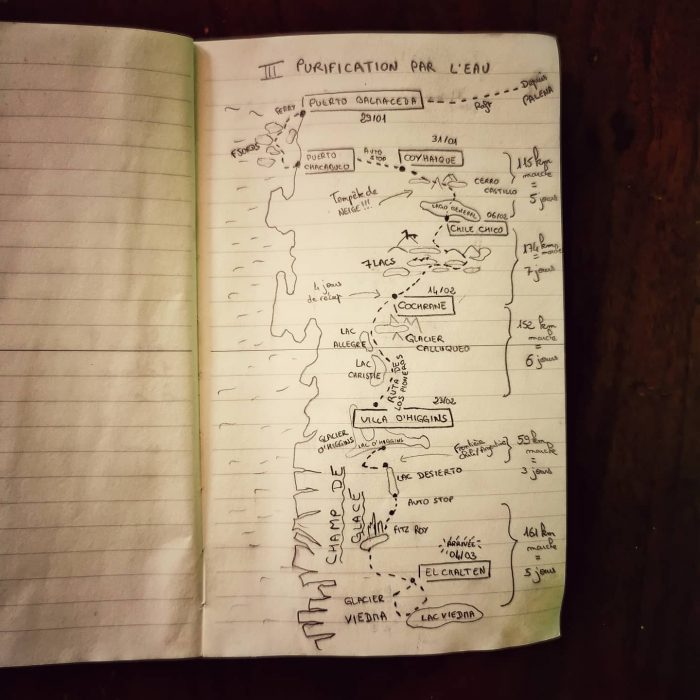 III PURIFICATION PAR L'EAU
Depuis
PALENA
FERRY
PUERTO BALMACEDA
29/01
FJORDS
31/01
PUERTO
CHACABUCO
AUTO
STOP
COYHAIQUE
115 km
marche
=
5 jours
CERRO
CASTILLO
Tempête de
NEIGE!!!
LAGO GENERAL
06/02
CHILE CHICO
174 km
marche
=
7 jours
7 LACS
4 jours
14/02
COCHRANE
LAC
ALLEGRE
GLACIER
CALLUQUEO
152 km
marche
=
6 jours
LAC
CHRISTIE
RUTA DES
LOS PIONEROS
23/02
VILLA O'HIGGINS
GLACIER
O'HIGGINS
LAC O'HIGGINS
Frontière
Chili/Argentine
59 km
marche
=
3 jours
LAC DESIERTO
CHAMP DE
GLACE
AUTO STOP
FITZ ROY
ARRIVÉE
04/03
EL CHALTEN
161 km
marche
=
5 jours
GLACIER
VIEDMA
LAC VIEDMA